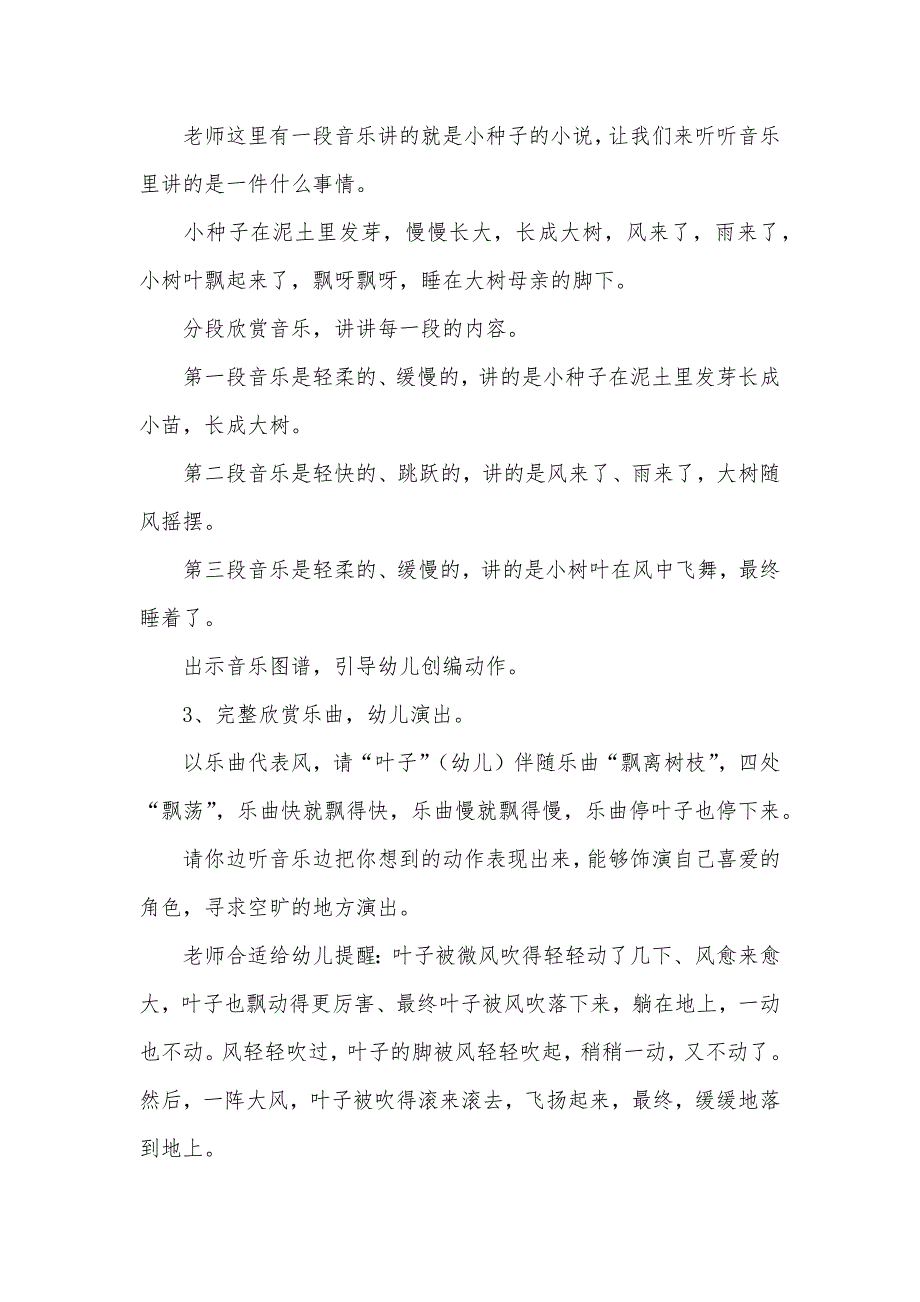 老师这里有一段音乐讲的就是小种子的小说，让我们来听听音乐
里讲的是一件什么事情。
小种子在泥土里发芽，慢慢长大，长成大树，风来了，雨来了，
小树叶飘起来了，飘呀飘呀，睡在大树母亲的脚下。
分段欣赏音乐，讲讲每一段的内容。
第一段音乐是轻柔的、缓慢的，讲的是小种子在泥土里发芽长成
小苗，长成大树。
第二段音乐是轻快的、跳跃的，讲的是风来了、雨来了，大树随
风摇摆。
第三段音乐是轻柔的、缓慢的，讲的是小树叶在风中飞舞，最终
睡着了。
出示音乐图谱，引导幼儿创编动作。
3、完整欣赏乐曲，幼儿演出。
以乐曲代表风，请“叶子”（幼儿）伴随乐曲“飘离树枝”，四处
“飘荡”，乐曲快就飘得快，乐曲慢就飘得慢，乐曲停叶子也停下来。
请你边听音乐边把你想到的动作表现出来，能够饰演自己喜爱的
角色，寻求空旷的地方演出。
老师合适给幼儿提醒：叶子被微风吹得轻轻动了几下、风愈来愈
大，叶子也飘动得更厉害、最终叶子被风吹落下来，躺在地上，一动
也不动。风轻轻吹过，叶子的脚被风轻轻吹起，稍稍一动，又不动了。
然后，一阵大风，叶子被吹得滚来滚去，飞扬起来，最终，缓缓地落
到地上。